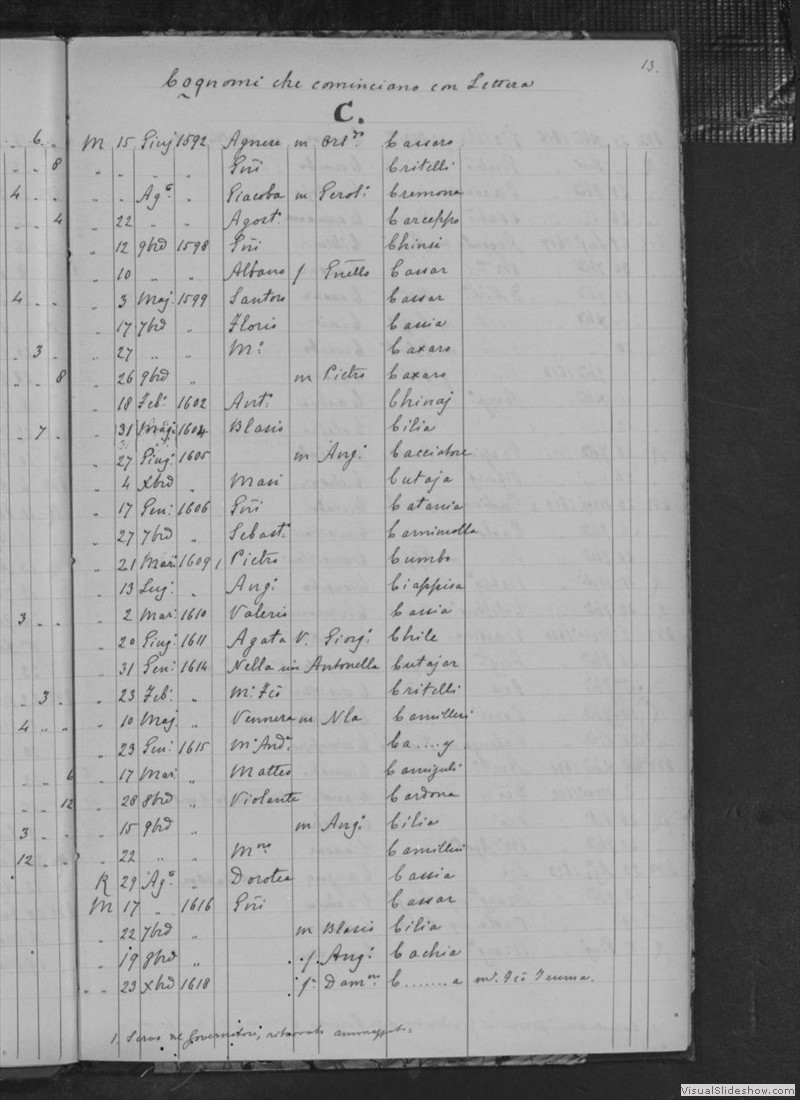 13.
Cognomi che cominciano con Lettera
C.
6. M 15 Giuj 1592 Agnese m Orl.do Cassaro
8 " " " " Gñi Critelli
4 " " Ag.o " Giacoba m Gerol: Cremona
4 " 22 " " Agost.o Carceppo
" 12 9brd 1598 Gñi Chinsi
" 10 " " Albano f Gñello Cassar
4 " 3 Maj: 1599 Santoro Cassar
" 17 7brd " Floris Cassia
3 " 27 " " M.o Caxaro
8 " 26 9brd " m Pietro Caxaro
" 18 Feb: 1602 Ant: Chinaj
7 " 31 Magi 1604 Blasio Cilia
" 27 Giuj: 1605 m Ang: Cacciatore
" 4 Xbrd " Masi Cutaja
" 17 Gen: 1606 Gñi Catania
" 27 7brd " Sebast.o Carnimolla
" 21 Mar: 1609 1 Pietro Cumbo
" 13 Lug: " Ang: Ciappisa
3 " 2 Mar: 1610 Valerio Cassia
" 20 Giug: 1611 Agata V. Giorg: Chile
" 31 Gen: 1614 Nella Antonella Cutajar
3 " 23 Feb: " M: Fcõ Critelli
4 " 10 Maj " Vennera m Nla Camilleri
" 23 Gen: 1615 M: And.a Ca....y
6 " 17 Mar: " Matteo Camiguli
12 " 28 8brd " Violante Cardona
3 " 15 9brd " m Ang: Cilia
12 " 22 " " M.no Camilleri
R 29 Ag.o " Dorotea Cassia
M 17 " 1616 Gñi Cassar
" 22 7brd " m Blasio Cilia
" 19 8brd " f. Ang: Cachia
" 23 Xbrd 1618 f. Dom.no C........a m.o Fcõ Temma.
1. Servo del Governatore, ritrovato ammazzato.
VisualSlideshow.com